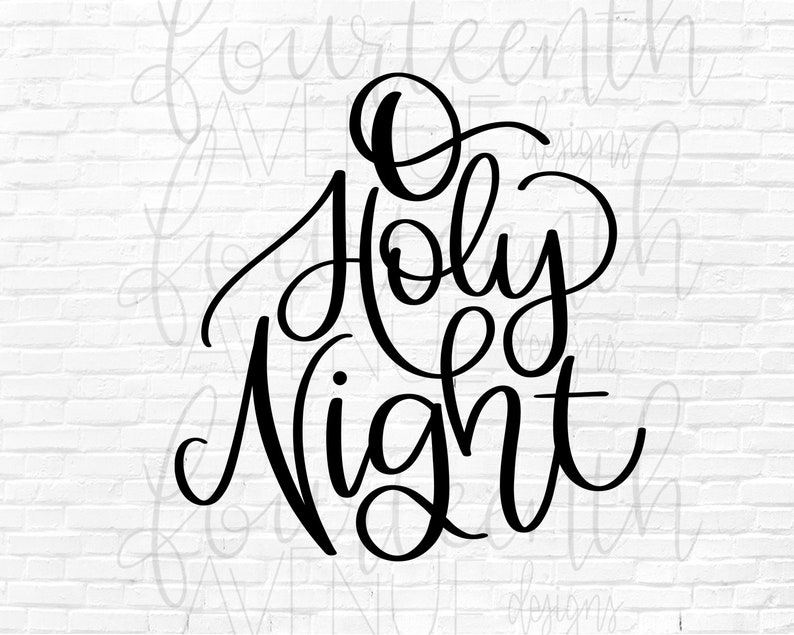 fourteenth
AVENUE designs
O
Holy
fourteenth
Night
AVENUE designs
fourteenth
AVENUE designs